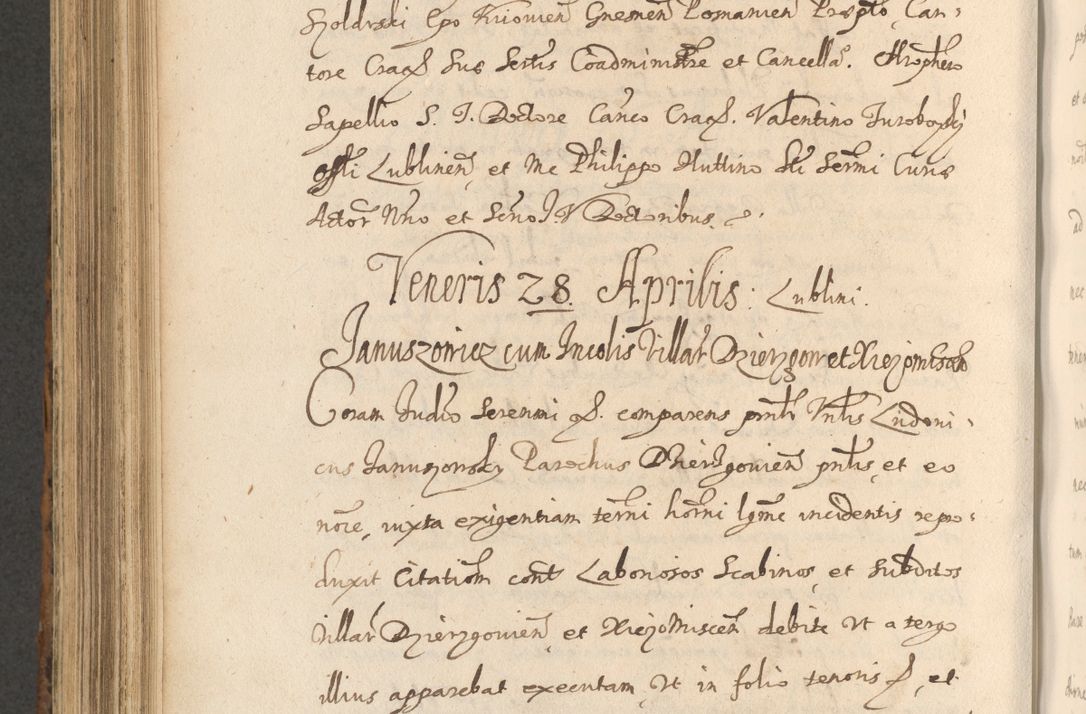 Holdrski Epo Kiiovien̄ Gnesnen̄ Posnanien̄ Præpto, Can-
tore Crac̄ Suæ Sertis Coadministre et Cancella. Christophero
Sapellio S. J. Doctore Canco Crac̄. Valentino Turobojski
offli Lublinen̄, et Me Philippo Huttino Sti Sermi Curiæ
Actor Nrio et Seno J. V. Doctoribus.
Veneris 28. Aprilis. Lublini.
Januszowicz cum Incolis Villar Dzierzgow et Xiezomiescen
Coram Iudio Serenmi &. comparens pntr Vntlis Ludoui-
cus Januszowsky Parochus Dzierzgouien̄ pntis, et eo
nōre, iuxta exigentiam termi horni lgme incidentis repro-
duxit Citatiom contr Laboriosos Scabinos, et Subditos
Villar Dzierzgouien̄ et Xiezomiscen̄ debite ut a tergo
illius apparebat executam, ut in folio tenoris &, et